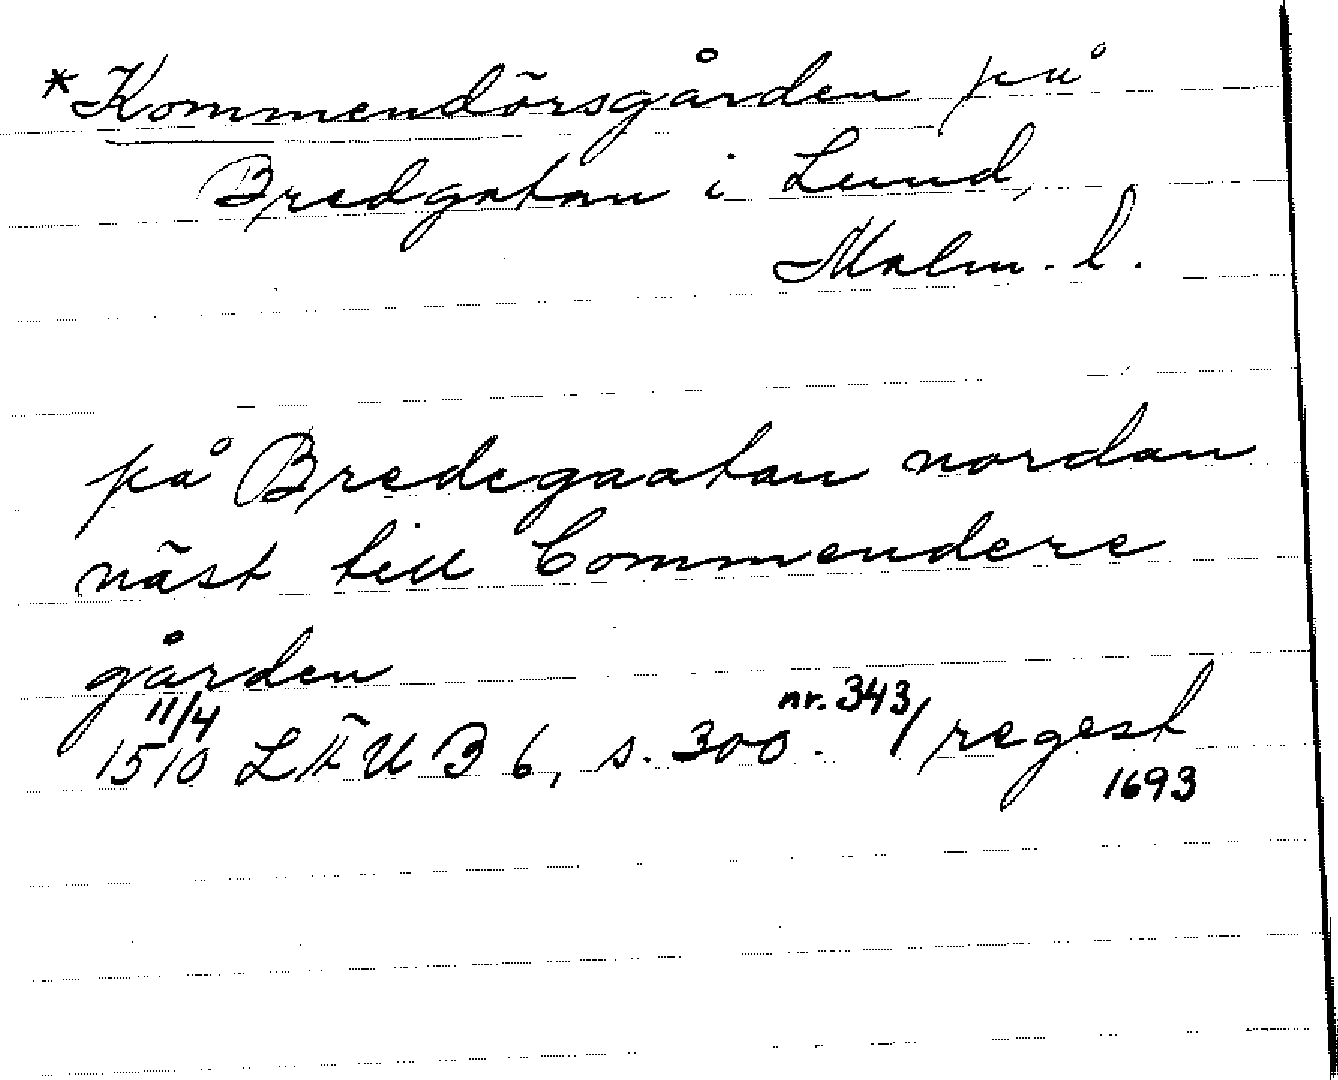 *Kommendörsgården på
Bredgatan i Lund,
Malm. l.
på Bredegaatan nordan
näst till Commendere
gården
11/4
1510 LÄUB 6, s. 300. nr. 343 / regest
1693